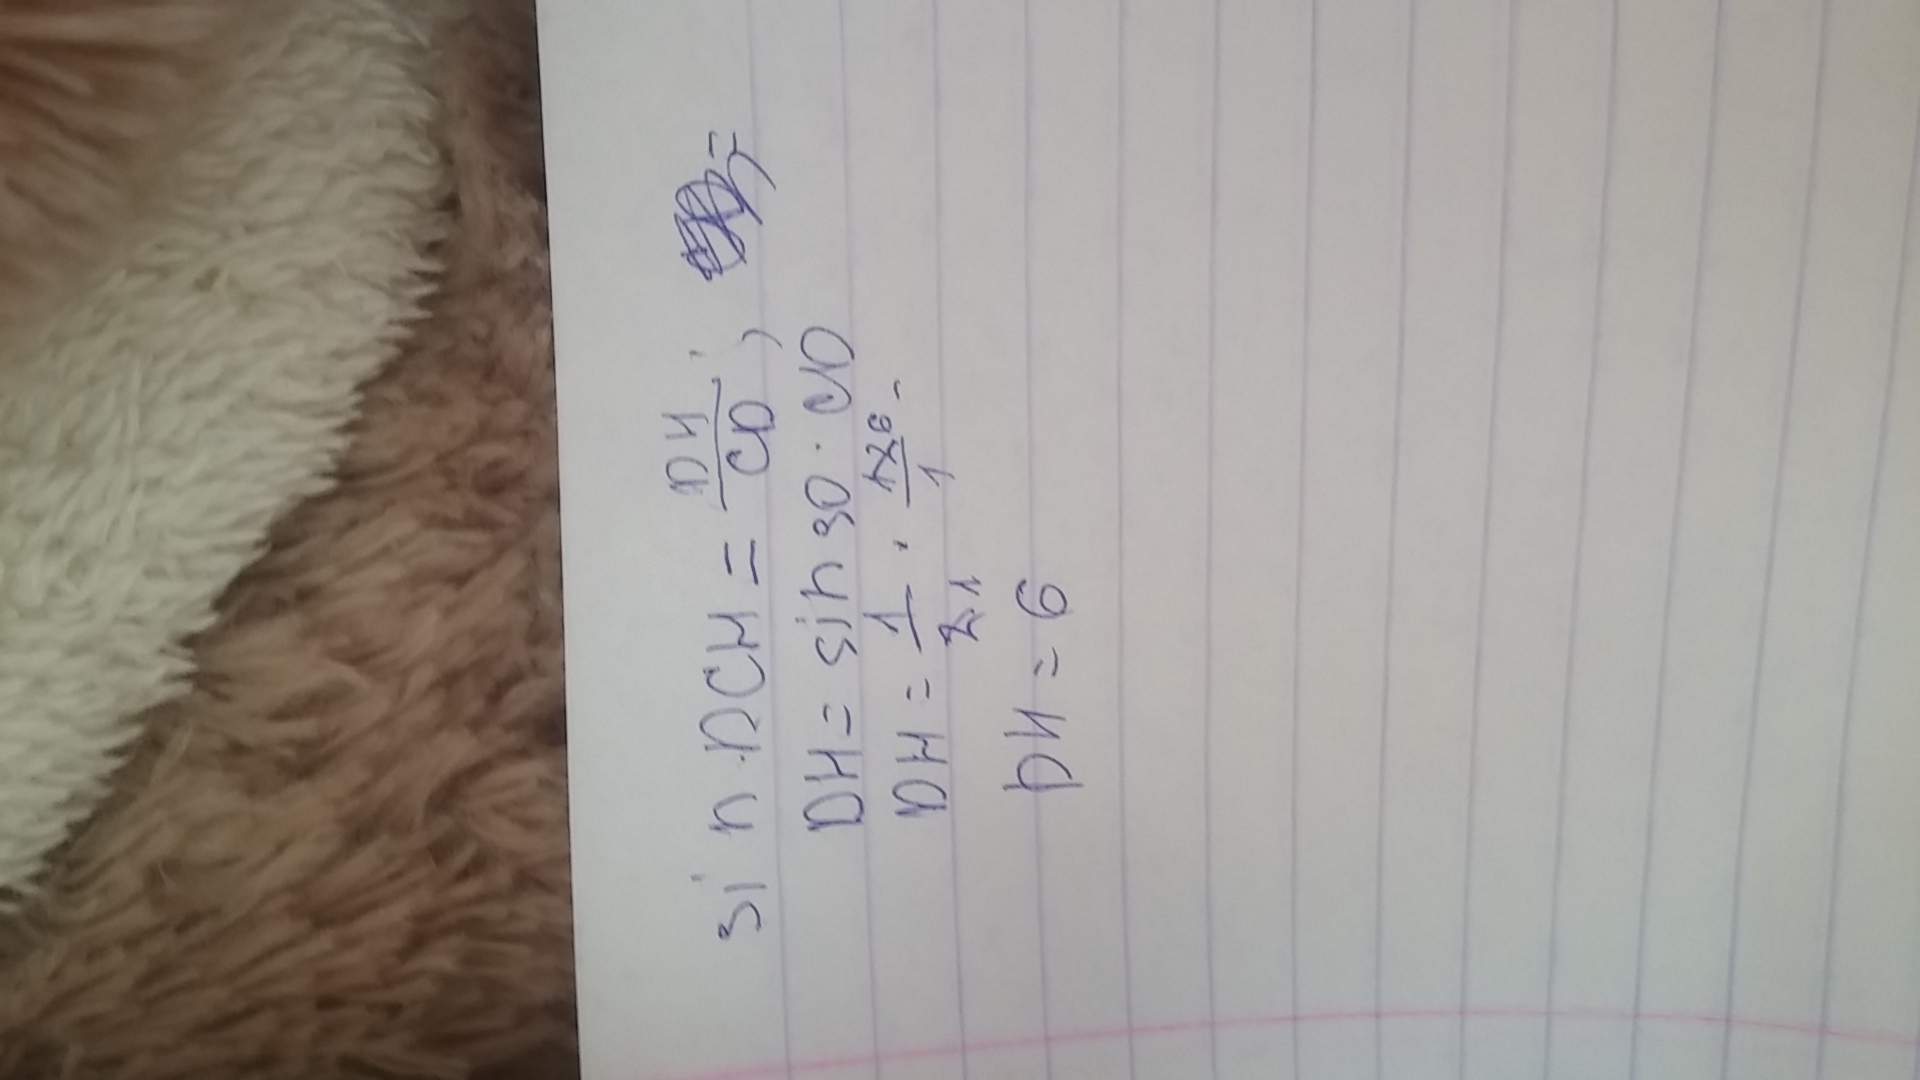 sin DCH = DH/CD,
DH = sin 30 · CD
DH = 1/2 1 · 12 6/1
DH = 6